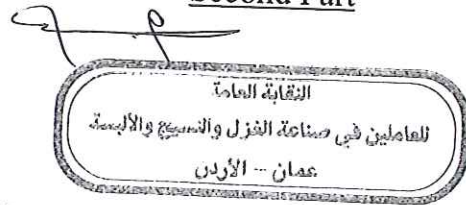 Second Part
النقابة العامة
للعاملين في صناعة الغزل والنسيج والألبسة
عمان -- الأردن